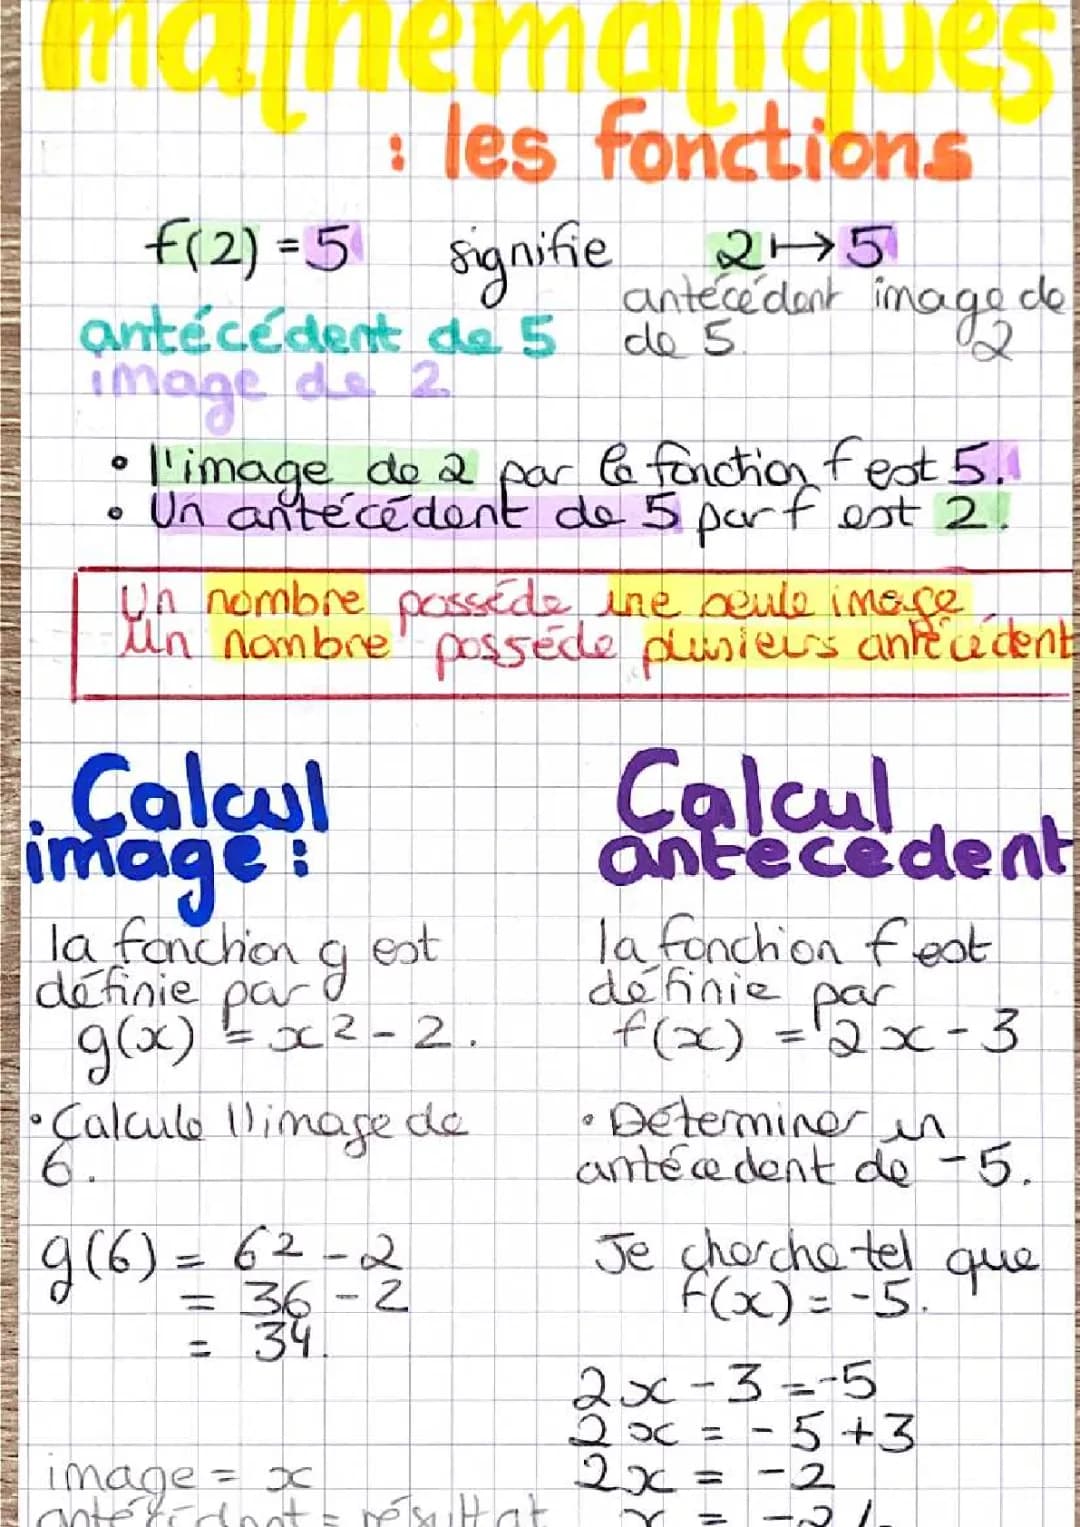 mathématiques
: les fonctions
f(2) = 5 signifie 2 ↦ 5
antécédent de 5. image de 2
antécédent de 5
image de 2
• l'image de 2 par la fonction f est 5.
• Un antécédent de 5 par f est 2.
Un nombre possède une seule image.
Un nombre possède plusieurs antécédent
Calcul image :
la fonction g est
définie par
g(x) = x² - 2.
• Calcule l'image de
6.
g(6) = 6² - 2
= 36 - 2
= 34.
image = x
antécédent = résultat
Calcul
antecedent
la fonction f est
définie par
f(x) = 2x - 3
• Déterminer un
antécedent de -5.
Je cherche tel que
f(x) = -5.
2x - 3 = -5
2x = -5 + 3
2x = -2
x = -2/